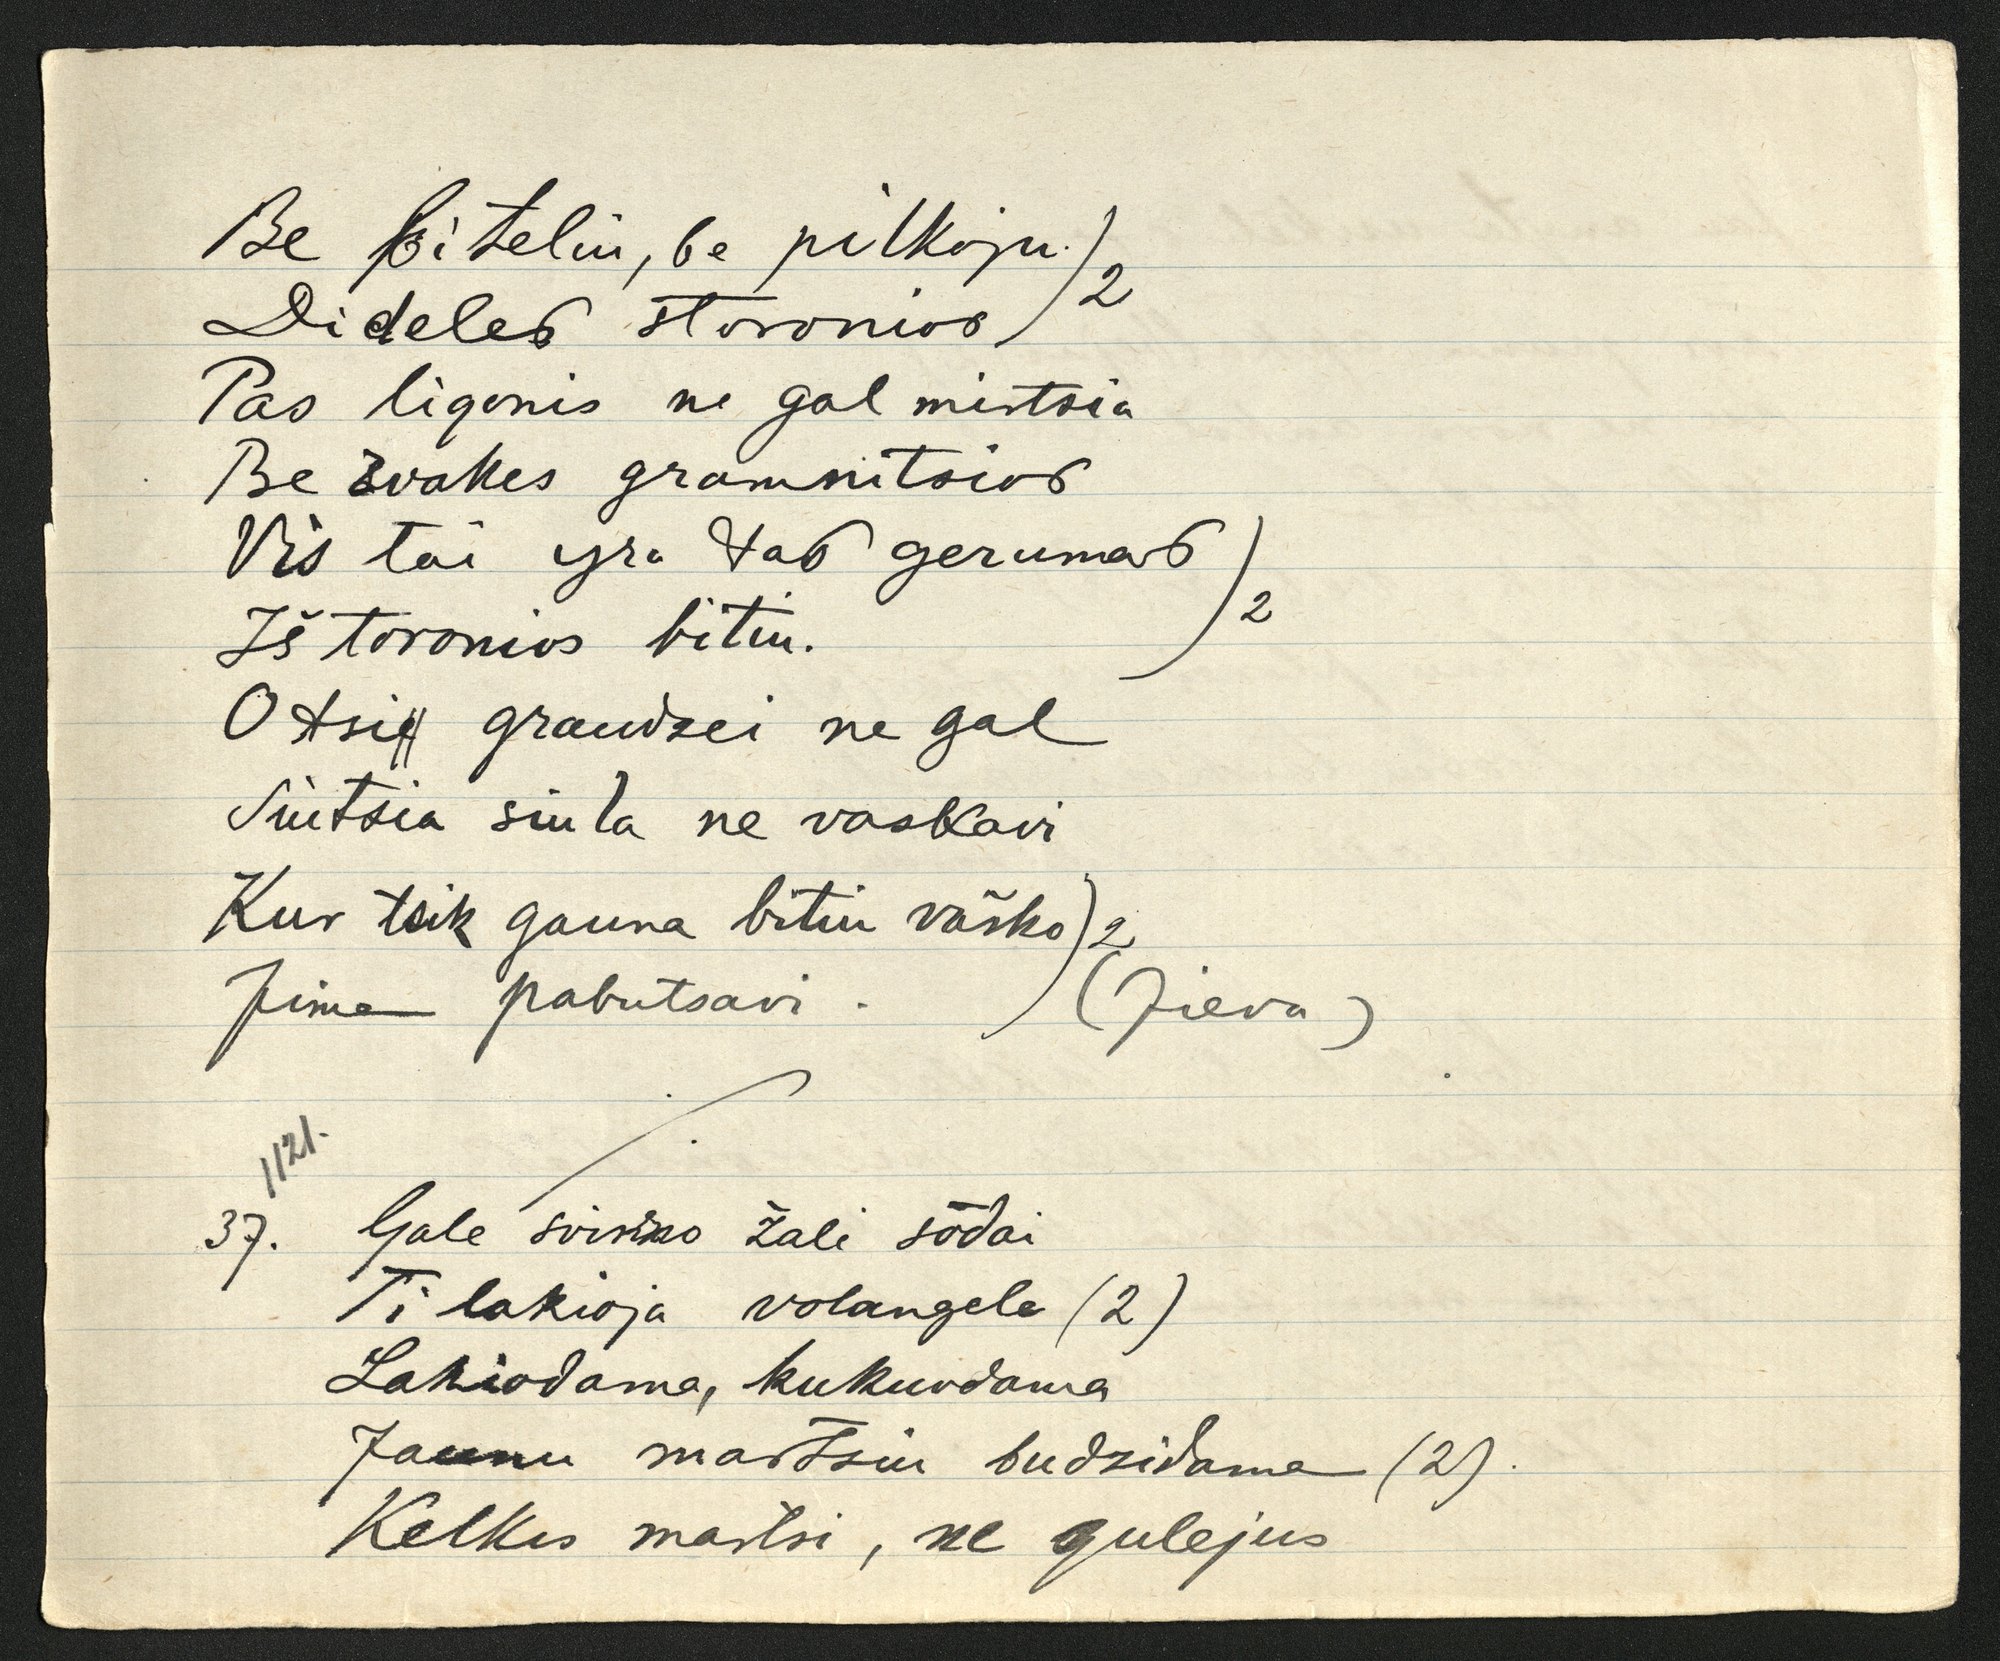 Be biteliu, be pilkoju.) 2
Dideles storonios
Pas ligonis ne gal mirtsia
Be zvakes gramnitsios
Vis tai yra tas gerumas ) 2
Iš toronios bitiu.
O tsie graudzei ne gal
Siutsia siula ne vaskavi
Kur tsik gauna bitiu vaško ) 2
Jima pabutsavi. (Jieva)
1121.
37. Gale svirno žali sōdai
Ti lakioja volangele (2)
Lakiodama, kukuodama
Jaunu martsiu budzidama (2).
Kelkis martsi, ne gulejus